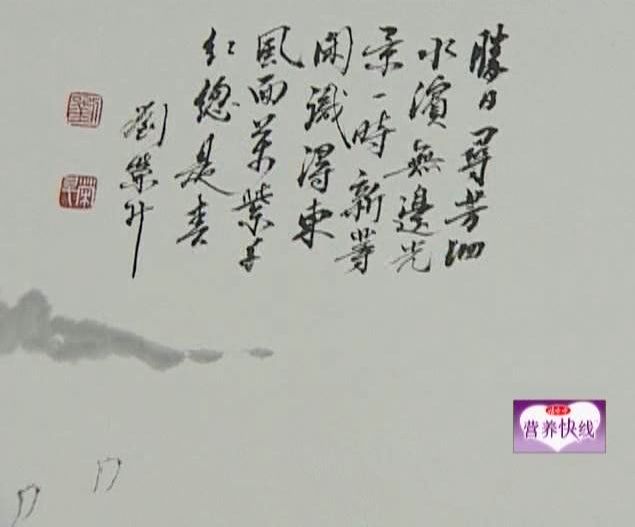 勝日尋芳泗
水濱無邊光
景一時新等
閑識得東
風面萬紫千
红總是春
劉榮升
营养快线